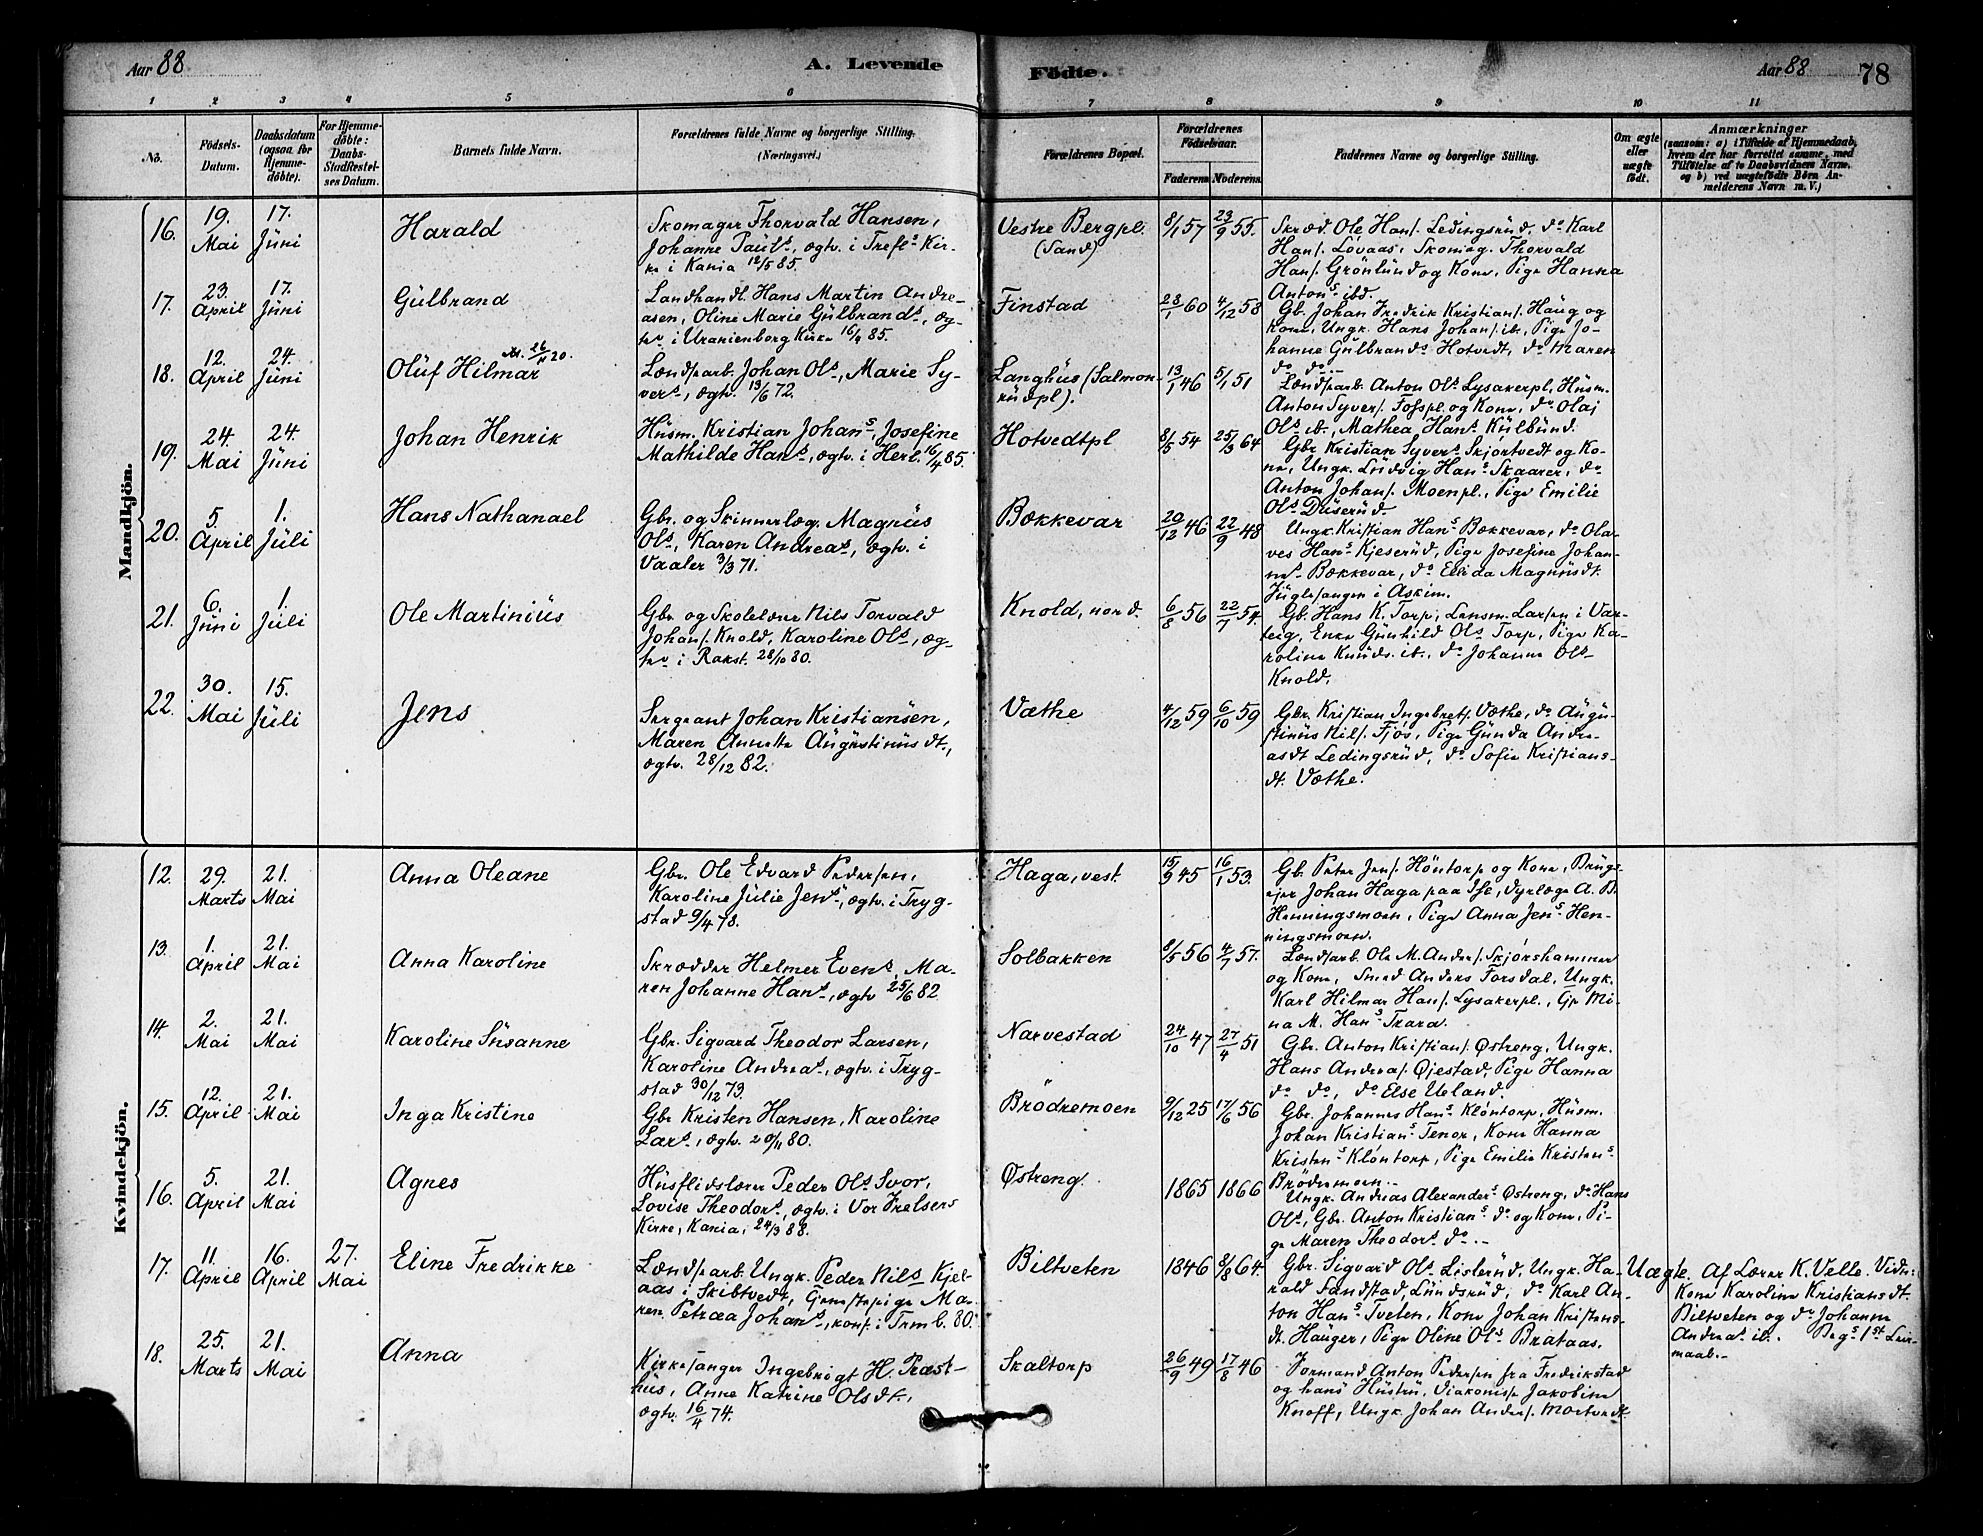 Aar 88
A. Levende
Födte.
Aar 88
78
1 2 3 4 5 6 7 8 9 10 11
No.
Födsels-
Datum.
Daabsdatum
(ogsaa for
Hjemme-
döbte).
For Hjemme-
döbte:
Daabs-
Stadfæstel-
ses Datum.
Barnets fulde Navn.
Forældrenes fulde Navne og borgerlige Stilling.
(Næringsvei.)
Forældrenes Bopæl.
Forældrenes
Födselsaar.
Faderens Moderens
Faddernes Navne og borgerlige Stilling.
Om ægte
eller
uægte
födt.
Anmærkninger
(saasom: a) i Tilfælde af Hjemmedaab,
hvem der har forrettet samme, med
Tilföielse af to Daabsvidners Navne,
og b) ved uægtefödte Börn An-
melderens Navn m. V.)
Mandkjön.
16.
19.
Mai
17.
Juni
Harald
Skomager Thorvald Hansen,
Johanne Pauls., ægtv. i Trefs. Kir-
ke i Kania 12/5 85.
Vestre Bergpl.
(Sand)
8/1 57
23/9 55.
Skræd. Ole Hans. Ledingsrud, do Karl
Hans. Lövaas, Skomag. Thorvald
Hans. Grönlund og Kone, Pige Hanna
Antons. ibd.
17.
23.
April
17.
Juni
Gulbrand
Landhandl. Hans Martin Andre-
asen, Oline Marie Gulbrands., æg-
tev. i Uranienborg Kirke 16/4 85.
Finstad
23/1 60
4/12 58
Gb. Johan Fredrik Kristians. Haug og
Kone, Ungk. Hans Johans. ib., Pige Jo-
hanne Gulbrands. Hotvedt, do Maren
do do.
18.
12.
April
24.
Juni
Oluf Hilmar
26/11 20.
Lændsarb. Johan Ols., Marie Sy-
vers., ægtv. 13/6 72.
Langhus (Salmon-
rudpl).
13/1 46
5/1 51
Lændsarb. Anton Ols. Lysakerpl., Husm.
Anton Syvers. Fosspl. og Kone, do Olai
Ols. ib., Mathea Hans. Kulbund.
19.
24.
Mai
24.
Juni
Johan Henrik
Husm. Kristian Johans., Josefine
Mathilde Hans., ægtv. i Herl. 16/4 85.
Hotvedtpl
8/5 54
25/3 64
Gbr. Kristian Syvers. Skjortvedt og Ko-
ne, Ungk. Ludvig Hans. Skaarer, do
Anton Johans. Moenpl., Pige Emilie
Ols. Duserud.
20.
5.
April
1.
Juli
Hans Nathanael
Gbr. og Skinnerlæg. Magnus
Ols., Karen Andreas., ægtv. i
Vaaler 3/3 71.
Bækkevar
20/12 46
22/9 48
Ungk. Kristian Hans. Bækkevar, do Ola-
ves Hans. Kjeserud, Pige Josefine Johan-
nes. Bækkevar, do Elida Magnusdt.
Fuglesangen i Askim.
21.
6.
Juni
1.
Juli
Ole Martinius
Gbr. og Skolelærer Nils Torvald
Johans. Knold, Karoline Ols., æg-
tev. i Rakst. 28/10 80.
Knold, nord.
6/8 56
22/7 54.
Gb. Hans K. Torp, Lensm. Larsen i Var-
teig, Enke Gunhild Ols. Torp, Pige Ka-
roline Knuds. ib., do Johanne Ols.
Knold.
22.
30.
Mai
15.
Juli
Jens
Sergeant Johan Kristiansen,
Maren Annette Augustinusdt.,
ægtv. 28/12 82.
Væthe
4/12 59
6/10 59
Gbr. Kristian Ingebrets. Væthe, do Augu-
stinus Nils. Fjös, Pige Gunda Andre-
asdt Ledingsrud, do Sofie Kristians-
dt. Væthe.
Kvindekjön.
12.
29.
Marts
21.
Mai
Anna Oleane
Gbr. Ole Edvard Pedersen,
Karoline Julie Jens., ægtv. i Tryg-
stad 9/4 78.
Haga, vest.
15/9 45
16/1 53.
Gb. Peter Jens. Höntorp og Kone, Brugs-
ejer Johan Haga paa Ise, Dyrlæge A. B.
Henningsmoen, Pige Anna Jens. Hen-
ningsmoen.
13.
1.
April
21.
Mai
Anna Karoline
Skrædder Helmer Evens., Ma-
ren Johanne Hans., ægtv 25/6 82
Solbakken
8/5 56
4/7 57.
Lændsarb. Ole M. Anders. Skjörshammer
og Kone, Smed Anders Forsdal, Ungk.
Karl Hilmar Hans. Lysakerpl., Gp Mi-
na M. Hans. Trara.
14.
2.
Mai
21.
Mai
Karoline Susanne
Gbr. Sigvard Theodor Larsen,
Karoline Andreas., ægtv. i Tryg-
stad 30/12 73.
Narvestad
24/10 47
27/4 51
Gbr. Anton Kristians. Østreng, Ungk.
Hans Andreas. Øjestad, Pige Hanna
do do, do Else Ueland.
15.
12.
April
21.
Mai
Inga Kristine
Gbr Kristen Hansen, Karoline
Lars., ægtv. 20/11 80.
Brödremoen
9/12 25
17/6 56
Gbr. Johannes Hans. Klöntorp, Husm.
Johan Kristians. Tenor, Kone Hanna
Kristens. Klöntorp, Pige Emilie Kristens.
Brödremoen.
16.
5.
April
21.
Mai
Agnes
Husflidslærer Peder Ols. Svor,
Lovise Theodors., ægtv. i Vor Frelsers
Kirke, Kania, 24/3 88.
Østreng
1865
1866
Ungk. Andreas Alexanders. Østreng, do Hans
Ols., Gbr. Anton Kristians. do og Kone, Pi-
ge Maren Theodors. do.
17.
11.
April
16.
April
27.
Mai
Eline Fredrikke
Lændsarb. Ungk. Peder Nils. Kjel-
aas i Skibtvedt, Tjenestepige Ma-
ren Petræa Johans., konf. i Trmb. 80.
Biltveten
1846
8/8 64.
Gbr. Sigvard Ols. Lislerud, Ungk. Ha-
rald Sandstad, Lundsrud, do Karl An-
ton Hans. Tveten, Kone Johan Kristens-
dt. Hauger, Pige Oline Ols. Brataas.
Uægte.
Af Lærer K. Velle. Vidn:
Kone Karoline Kristiansdt.
Biltveten og do Johanne
Andreas. ib. Beg.s 1st Leir-
maab.
18.
25.
Marts
21.
Mai
Anna
Kirkesanger Ingebrigt H. Præst-
hus, Anne Katrine Olsdt.,
ægtv. 16/4 74.
Skaltorp
26/9 49
17/8 46
Formand Anton Pedersen fra Fredrikstad
og hans Hustru, Diakonisse Jakobine
Knoff, Ungk. Johan Anders. Mortvedt.